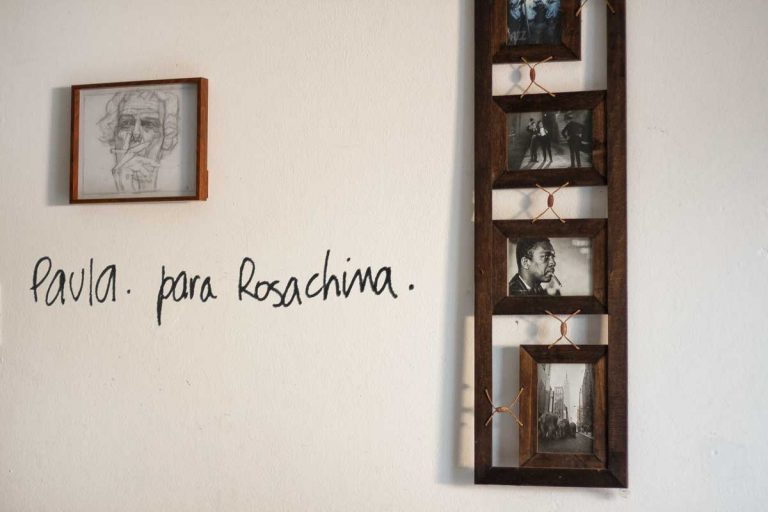 JAZZ
Paula. para Rosachina.